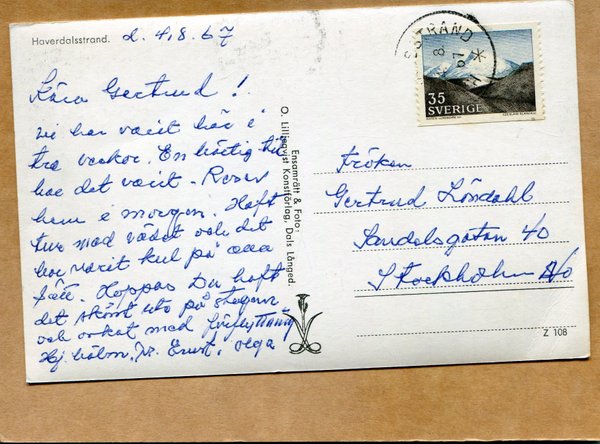 Haverdalsstrand.
d. 4.8.67
Kära Gertrud!
vi har varit här i
tre veckor. En härlig tid
har det varit. Reser
hem i morgon. Haft
tur med vädret och det
har varit kul på alla
sätt. Hoppas Du haft
det skönt ute på stugan
och orkat med förflyttning
Hj. hälsn. Ernst, Olga
Ensamrätt & Foto:
O. Lilljeqvist Konstförlag, Dals Långed.
STRAND
8
67
35
SVERIGE
Fröken
Gertrud Löndahl
Sandelsgatan 40
Stockholm NO
Z 108